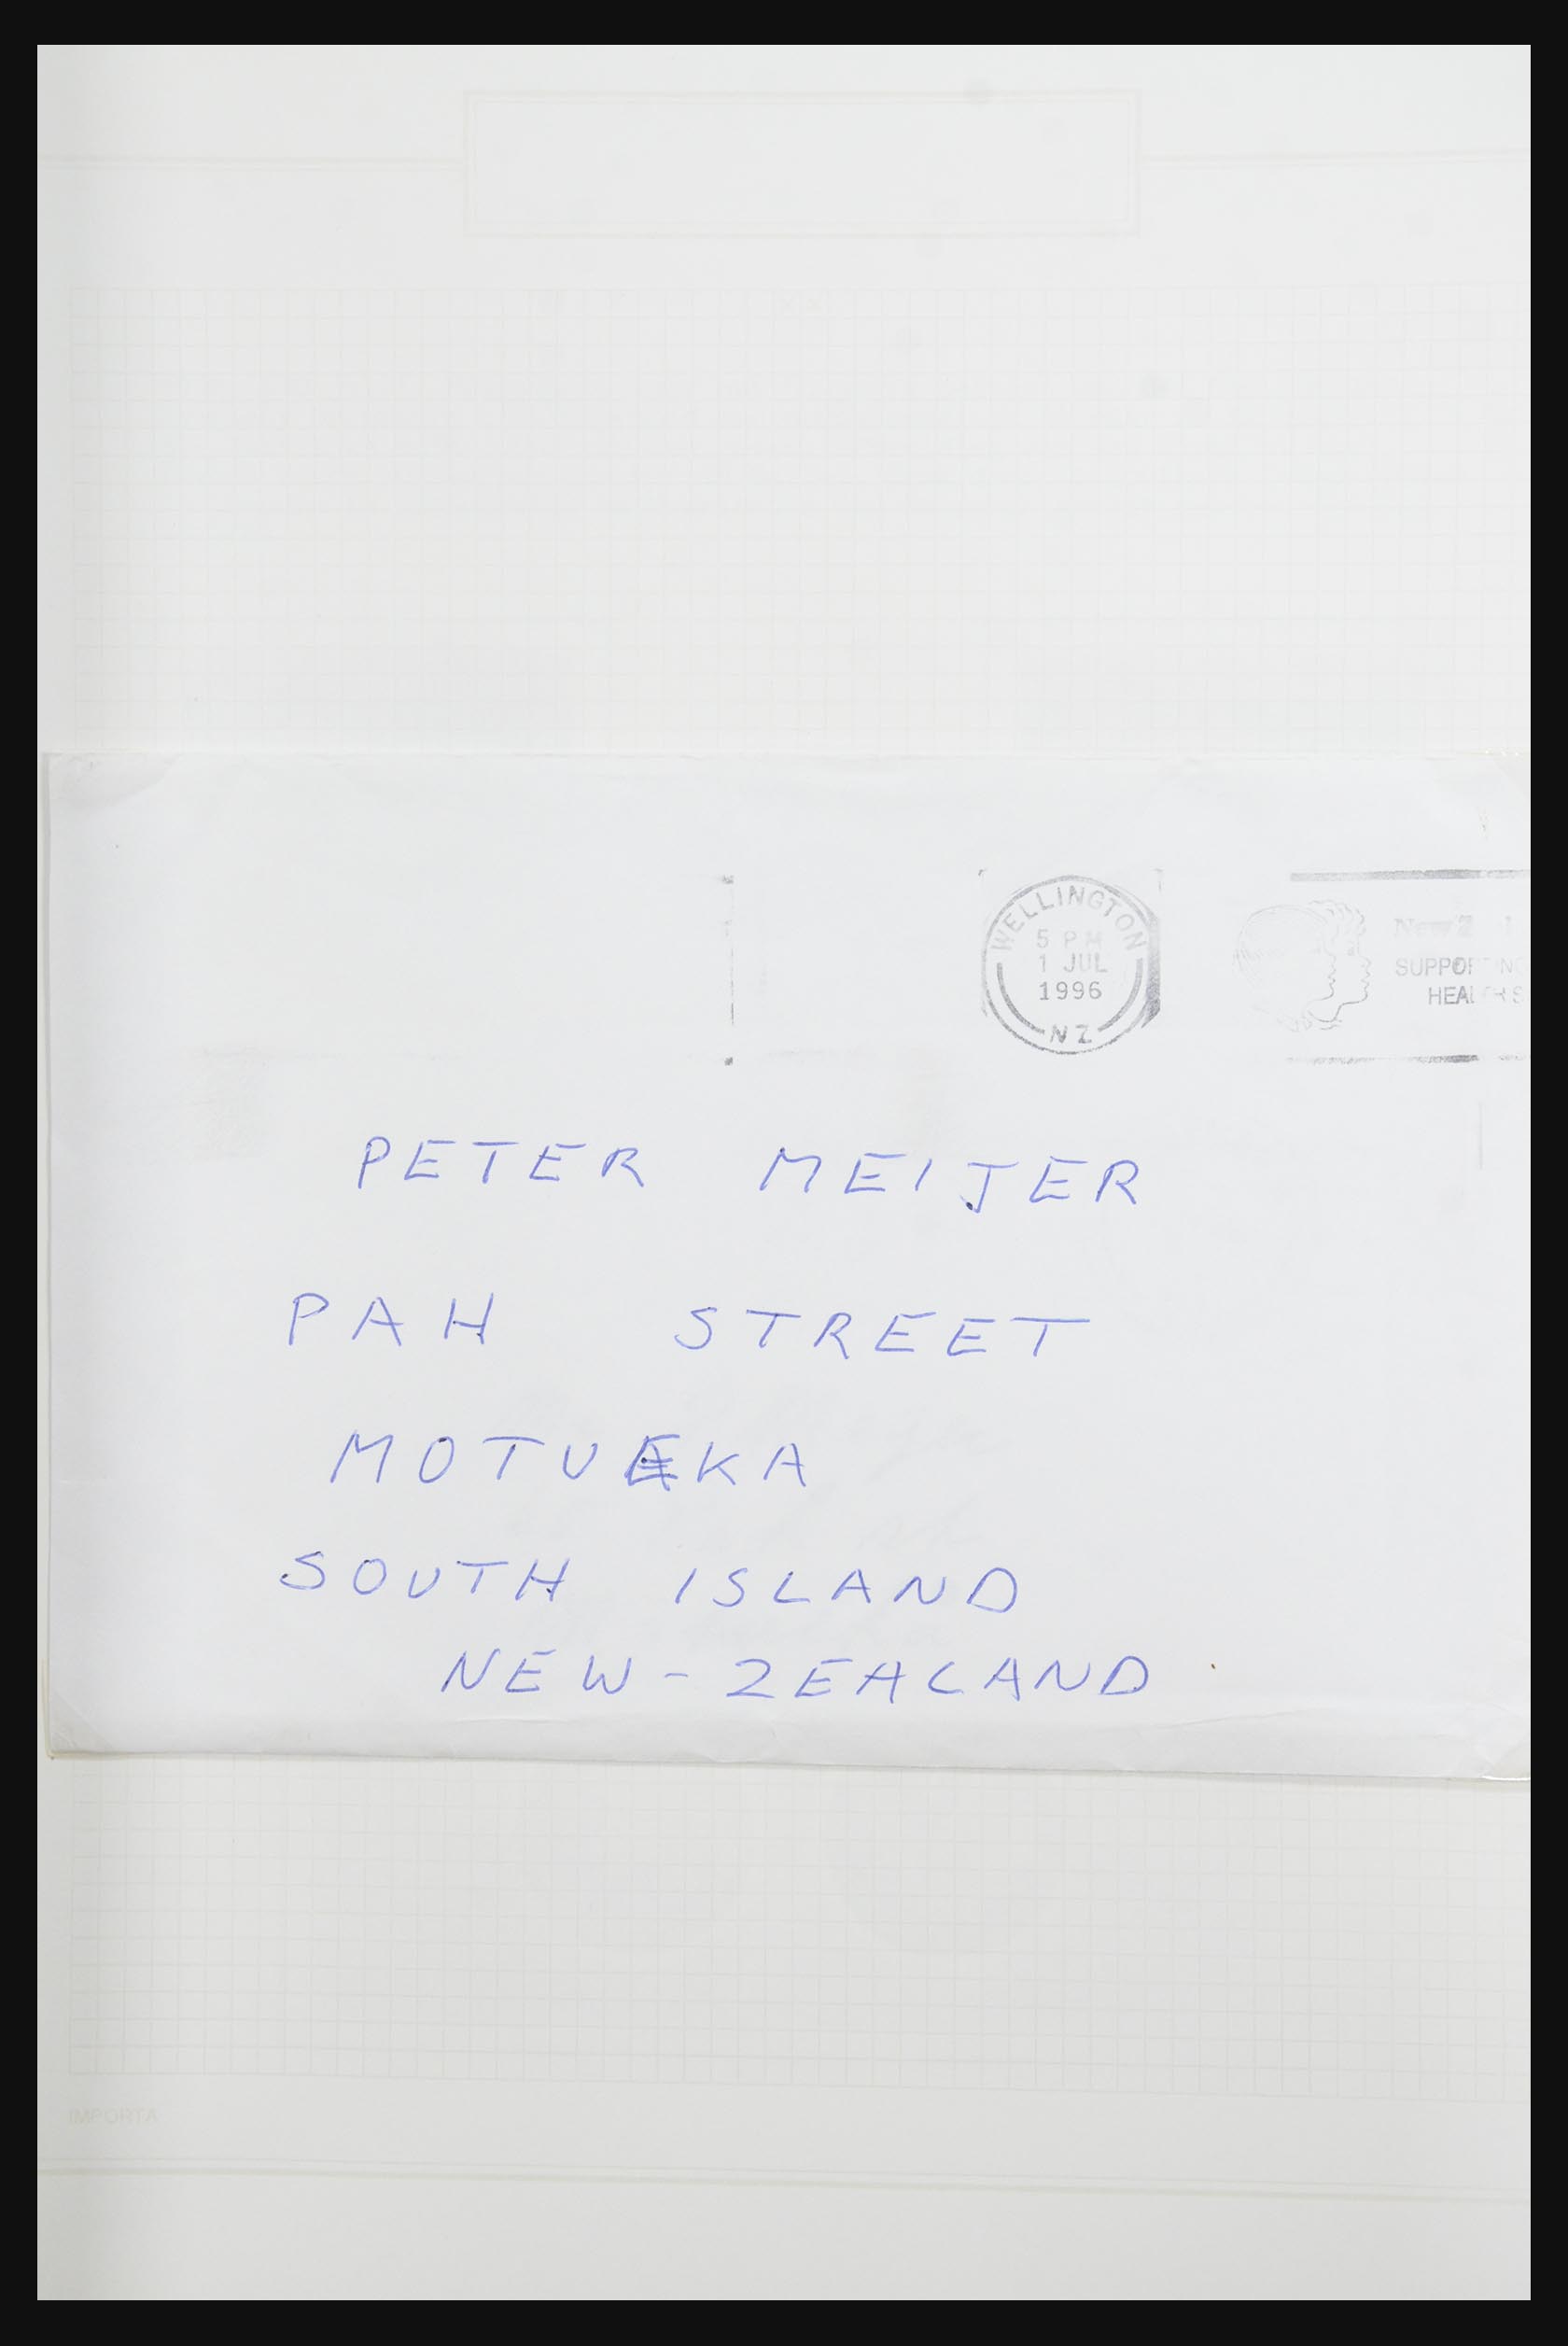 WELLINGTON
5 PM
1 JUL
1996
NZ
PETER MEIJER
PAH STREET
MOTUEKA
SOUTH ISLAND
NEW-ZEALAND
IMPORTA